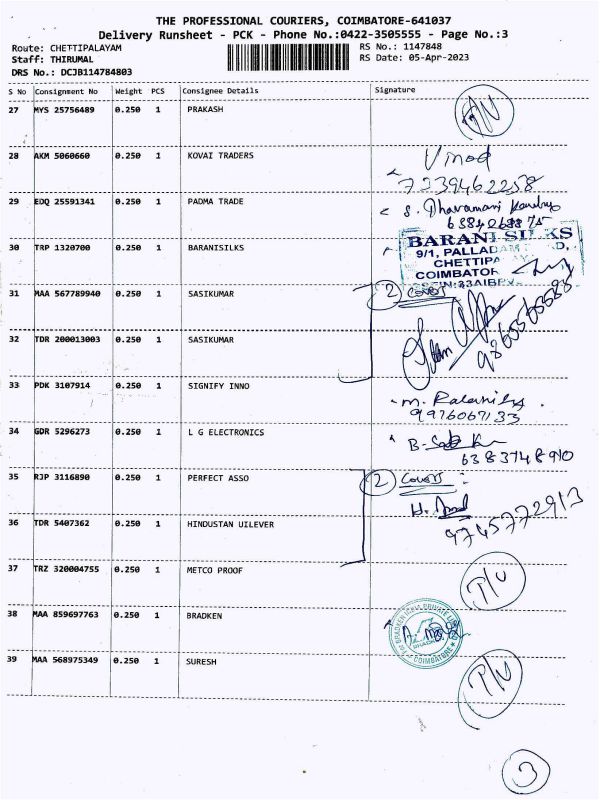 THE PROFESSIONAL COURIERS, COIMBATORE-641037
Delivery Runsheet - PCK - Phone No.:0422-3505555 - Page No.:3
Route: CHETTIPALAYAM RS No.: 1147848
Staff: THIRUMAL RS Date: 05-Apr-2023
DRS No.: DCJB114784803
S No Consignment No Weight PCS Consignee Details Signature
27 MYS 25756489 0.250 1 PRAKASH
28 AKM 5060660 0.250 1 KOVAI TRADERS Vinod
29 EDQ 25591341 0.250 1 PADMA TRADE
30 TRP 1320700 0.250 1 BARANISILKS
BARANI SILKS
9/1, PALLADAM
CHETTIPA
COIMBATOR
31 MAA 567789940 0.250 1 SASIKUMAR 2 Covers
32 TDR 200013003 0.250 1 SASIKUMAR
33 PDK 3107914 0.250 1 SIGNIFY INNO
9976067133
34 GDR 5296273 0.250 1 L G ELECTRONICS
6383748910
35 RJP 3116890 0.250 1 PERFECT ASSO 2 Covers
36 TDR 5407362 0.250 1 HINDUSTAN UILEVER
9745772913
37 TRZ 320004755 0.250 1 METCO PROOF
38 MAA 859697763 0.250 1 BRADKEN
COIMBATORE
39 MAA 568975349 0.250 1 SURESH
3